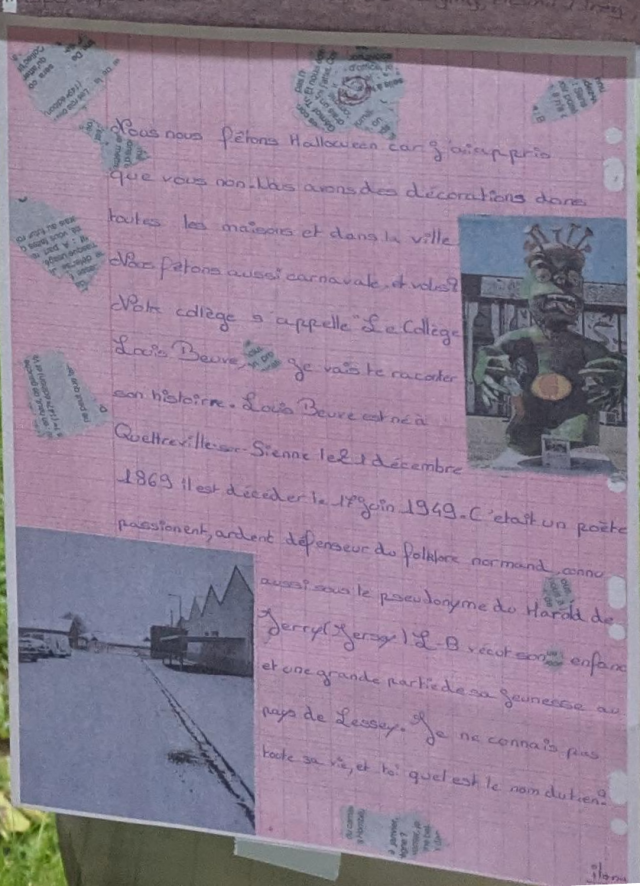 Nous nous fêtons Halloween car j'ai appris
que vous non. Nous avons des décorations dans
toutes les maisons et dans la ville
Nous fêtons aussi carnavale, et vous?
Notre collège s'appelle "Le Collège
Louis Beuve, Je vais te raconter
son histoirre. Louis Beuve est né à
Quettreville-sur-Sienne le 21 décembre
1869 il est décéder le 17 juin 1949. C'était un poète
passionent, ardent défenseur du folklore normand, connu
aussi sous le pseudonyme du Harold de
Jerry (Jersey). L-B vécut son enfance
et une grande partie de sa jeunesse au
pays de Lessey. Je ne connais pas
toute sa vie, et toi quel est le nom du tien?